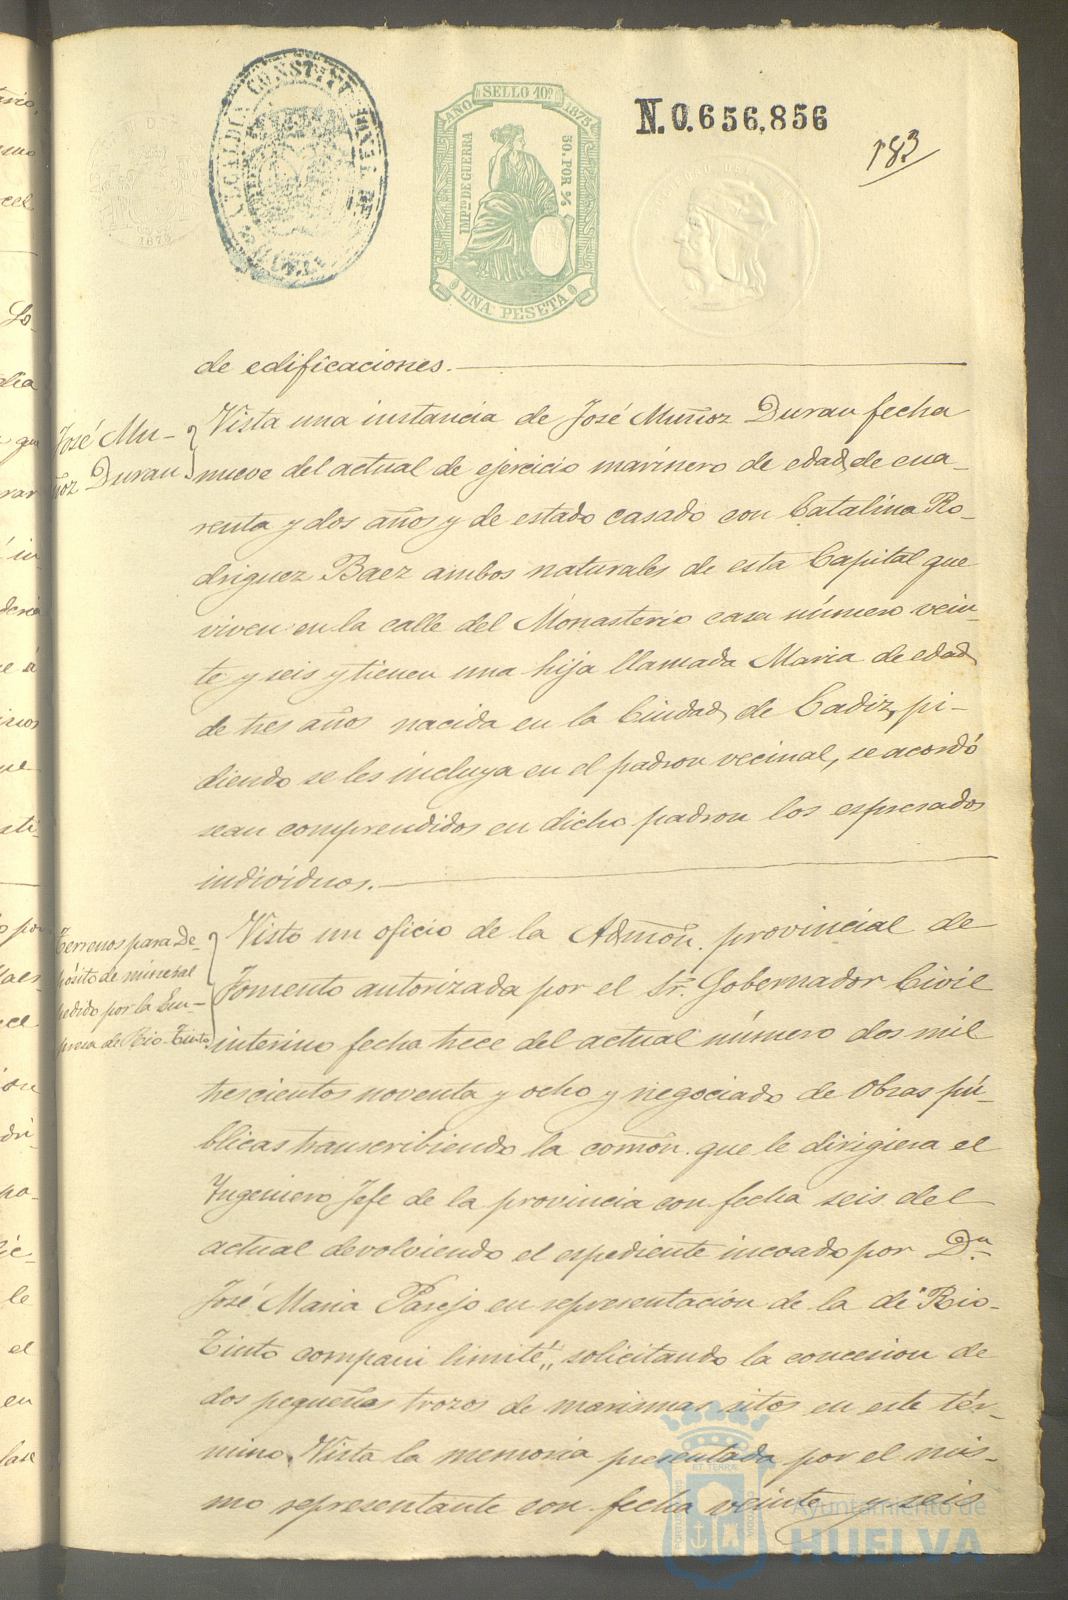 ALCALDIA CONSTITUCIONAL DE
AÑO SELLO 10º 1875
IMP.to DE GUERRA
50. POR %
UNA PESETA
N. 0.656,856
183
de edificaciones.
José Mu-
ñoz Duran
Vista una instancia de José Muñoz Duran fecha
nueve del actual de ejercicio marinero de edad de cua-
renta y dos años y de estado casado con Catalina Ro-
driguez Baez ambos naturales de esta Capital que
viven en la calle del Monasterio casa número vein-
te y seis y tienen una hija llamada Maria de edad
de tres años nacida en la Ciudad de Cadiz, pi-
diendo se les incluya en el padron vecinal, se acordó
sean comprendidos en dicho padron los espresados
individuos.
Terrenos para De-
pósito de mineral
pedido por la Em-
presa de Rio-Tinto
Visto un oficio de la Admõn. provincial de
Fomento autorizada por el Sr. Gobernador Civil
interino fecha trece del actual número dos mil
trescientos noventa y ocho y negociado de Obras pú-
blicas transcribiendo la comõn. que le dirigiera el
Ingeniero Jefe de la provincia con fecha seis del
actual devolviendo el espediente incoado por Dn
José Maria Parejo en representación de la de "Rio-
Tinto compani limité„ solicitando la concesion de
dos pequeños trozos de marismas sitos en este tér-
mino. Vista la memoria presentada por el mis-
mo representante con fecha veinte y seis
Ayuntamiento de
HUELVA